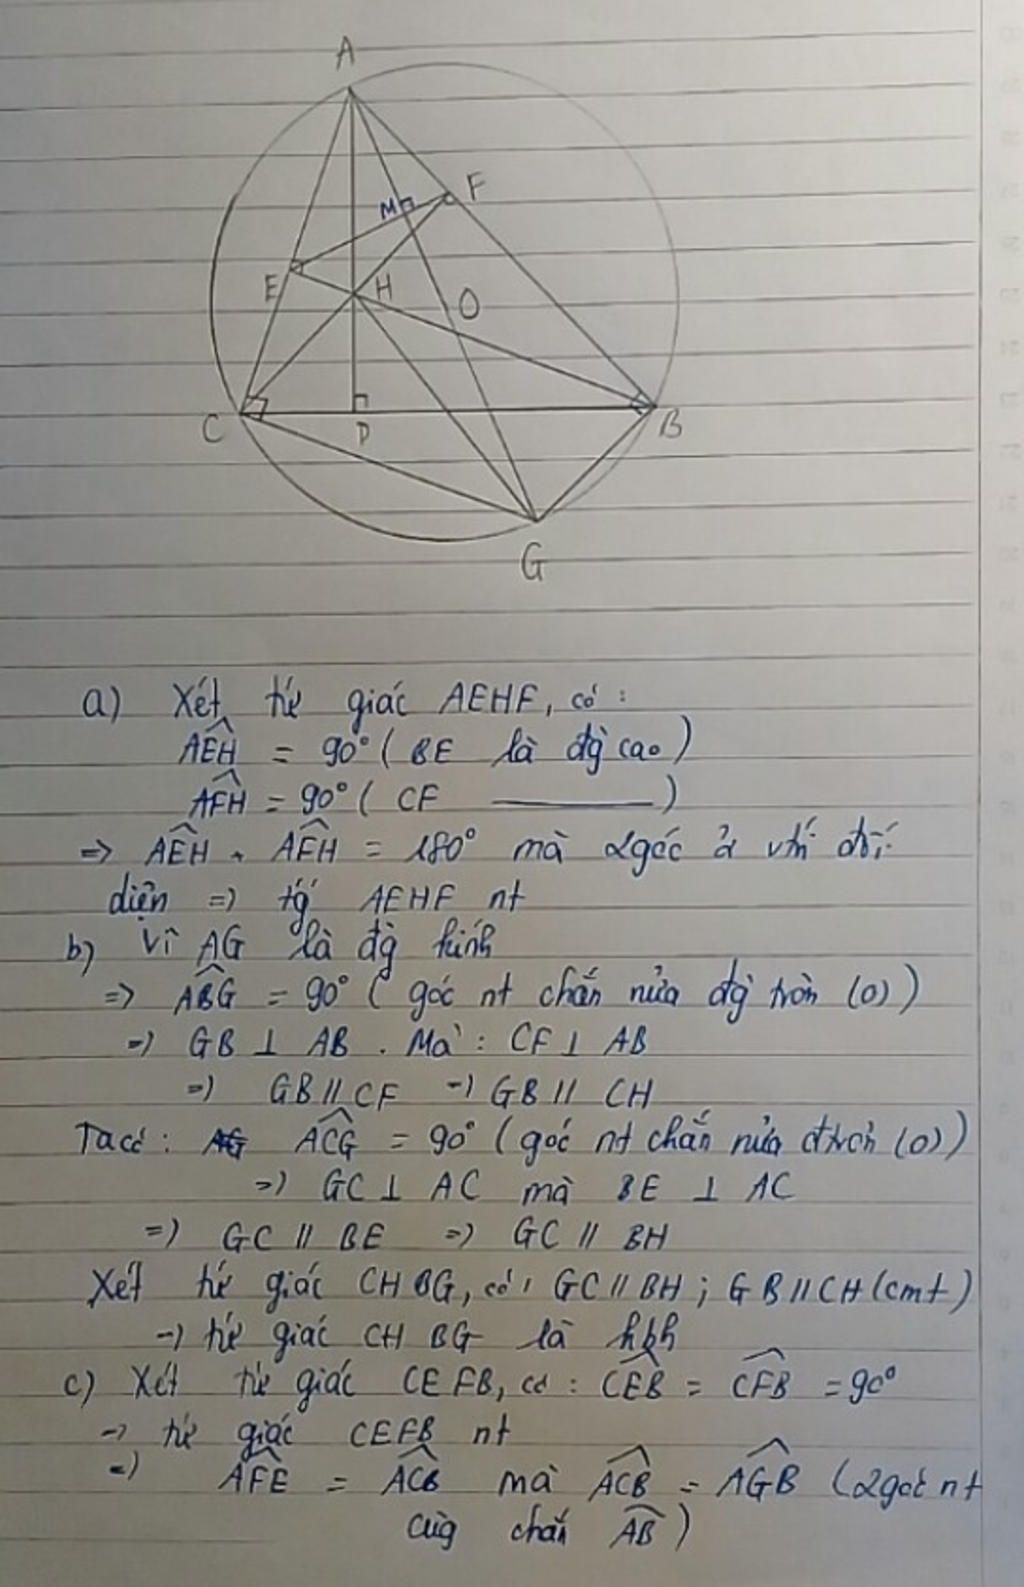 A
M
F
E
H
O
C
D
B
G
a) Xét tứ giác AEHF, có :
AEH = 90° ( BE là đg̀ cao )
AFH = 90° ( CF ——— )
=> AEH + AFH = 180° mà 2góc ở vtrí đối
diện => tg AEHF nt
b) Vì AG là đg̀ kính
=> ABG = 90° ( góc nt chắn nửa đg̀ tròn (O) )
=) GB ⊥ AB . Mà : CF ⊥ AB
=) GB // CF =) GB // CH
Ta có : ACG = 90° ( góc nt chắn nửa đtròn (O) )
=) GC ⊥ AC mà BE ⊥ AC
=) GC // BE =) GC // BH
Xét tứ giác CHBG, có : GC // BH ; GB // CH (cmt)
=) tứ giác CHBG là hbh
c) Xét tứ giác CEFB, có : CEB = CFB = 90°
=) tứ giác CEFB nt
=) AFE = ACB mà ACB = AGB ( 2góc nt
cùg chắn AB )